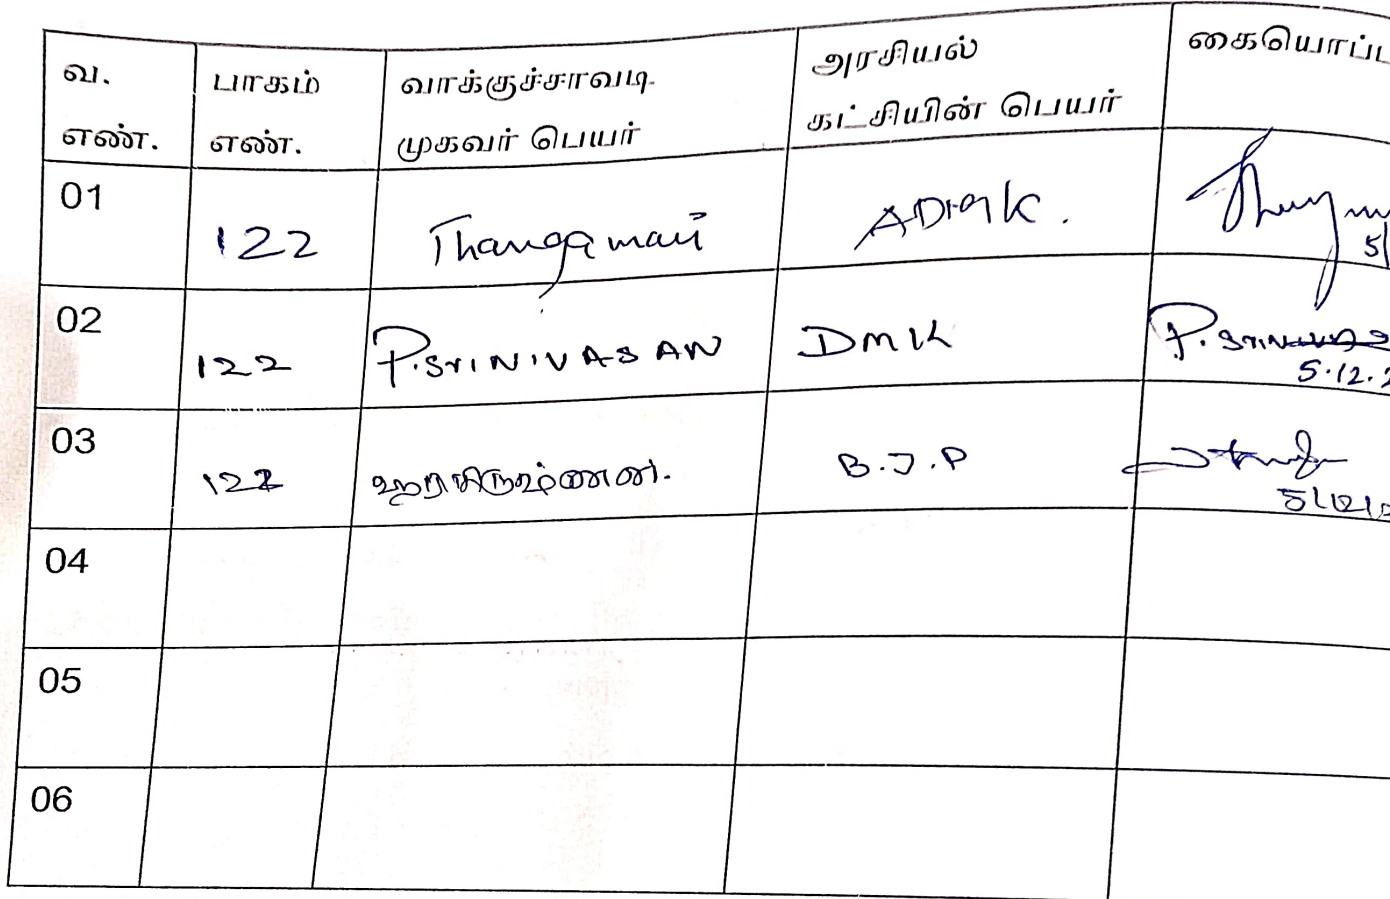 வ. எண். பாகம் எண். வாக்குச்சாவடி முகவர் பெயர் அரசியல் கட்சியின் பெயர் கையொப்ப
01 122 Thangamari ADMK.
5/
02 122 P.SRINIVASAN DMK P. Srinivas
5.12.2
03 122 ஹரிகிருஷ்ணன். B.J.P
5/12/2
04
05
06